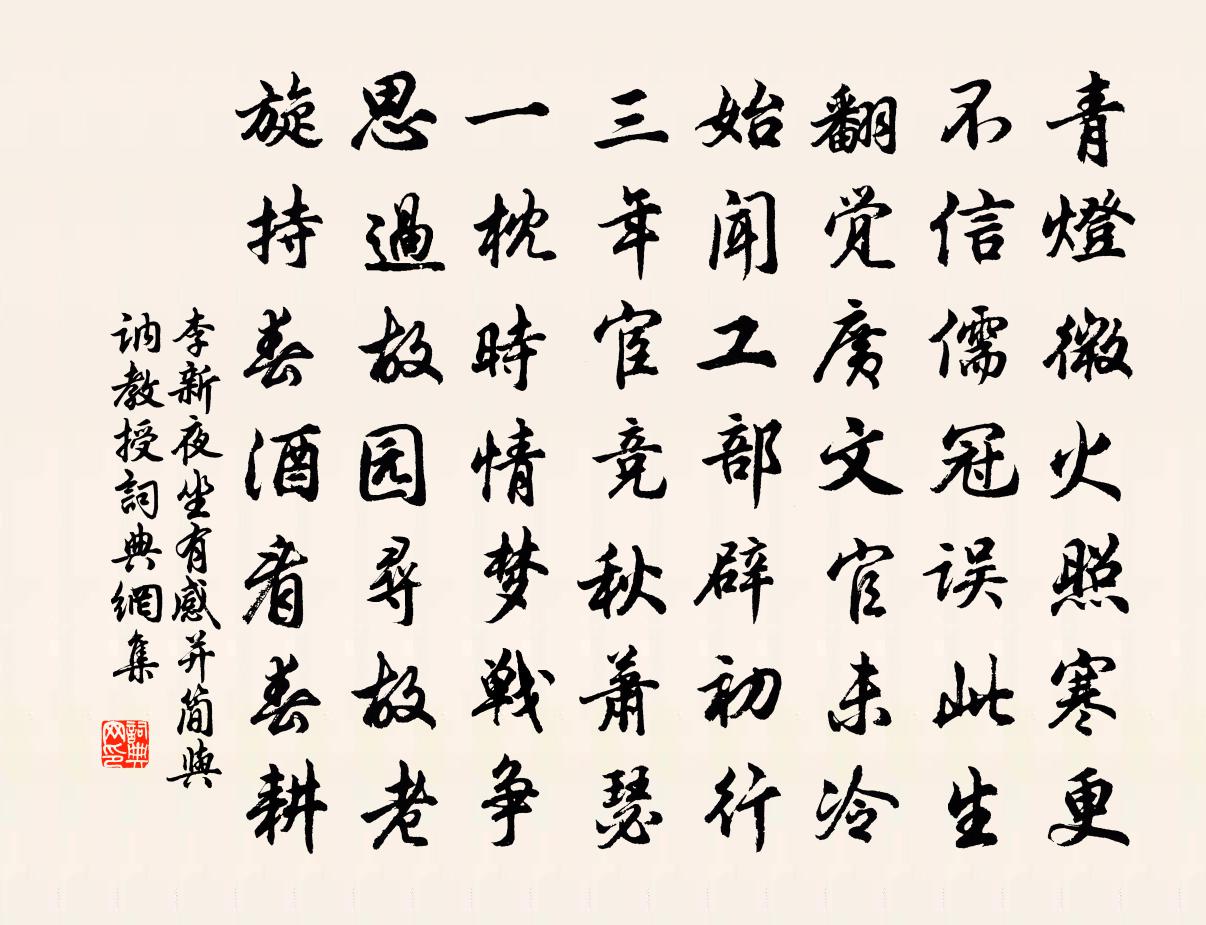 青燈微火照寒更
不信儒冠误此生
翻觉广文官未冷
始闻工部辟初行
三年宦竞秋萧瑟
一枕時情梦戦争
思過故园尋故老
旋持春酒看春耕
李新夜坐有感并简與
讷教授詞典網集
詞典
网印